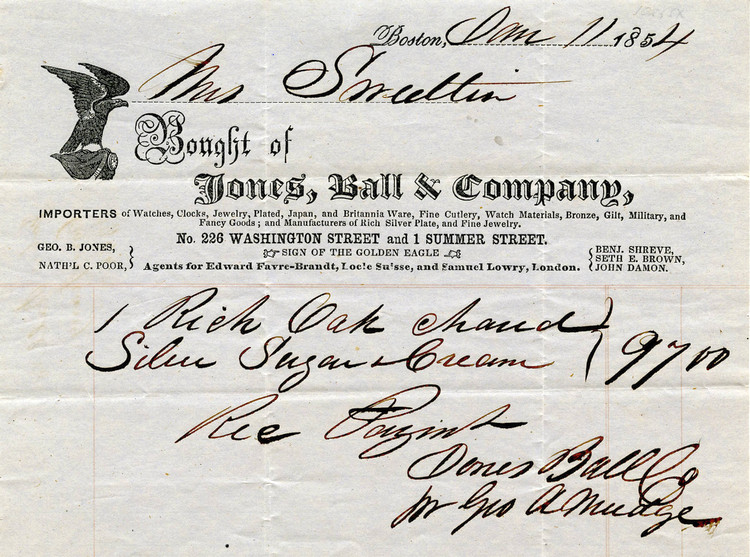 Boston, Jan 11 1854
Mrs Sweetlin
Bought of
Jones, Ball & Company,
IMPORTERS of Watches, Clocks, Jewelry, Plated, Japan, and Britannia Ware, Fine Cutlery, Watch Materials, Bronze, Gilt, Military, and
Fancy Goods; and Manufacturers of Rich Silver Plate, and Fine Jewelry.
No. 226 WASHINGTON STREET and 1 SUMMER STREET.
GEO. B. JONES,
NATH'L C. POOR,
SIGN OF THE GOLDEN EAGLE
Agents for Edward Favre-Brandt, Locle Suisse, and Samuel Lowry, London.
BENJ. SHREVE,
SETH E. BROWN,
JOHN DAMON.
1 Rich Oak chased
Silver Sugar & Cream 97 00
Rec Paymt
Jones Ball & Co
pr Geo A Mudge